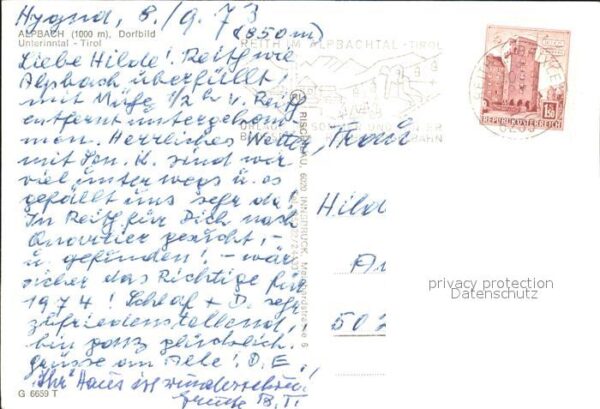 8./9.73
(850m)
ALPBACH (1000 m), Dorfbild
Unterinntal - Tirol
Liebe Hilde! Reith wie
Alpbach überfüllt!
mit Mühe 1/2 h v. Reith
entfernt untergekom-
men. Herrliches Wetter,
mit sind wir
viel unterwegs u. es
gefällt uns sehr da!
In Reith für Dich nach
Quartier gesucht, -
u. gefunden! - wär
sicher das Richtige für
1974! Schlaf + D. sehr
zufriedenstellend,
bin ganz glücklich.
Grüsse an Alle! D. E.
Ihr Haus ist wunderschön!
Grüße
G 6659 T
REITH IM ALPBACHTAL-TIROL
RISCH-LAU, 6020 INNSBRUCK
REPUBLIK ÖSTERREICH
Frau
Hild
privacy protection
Datenschutz